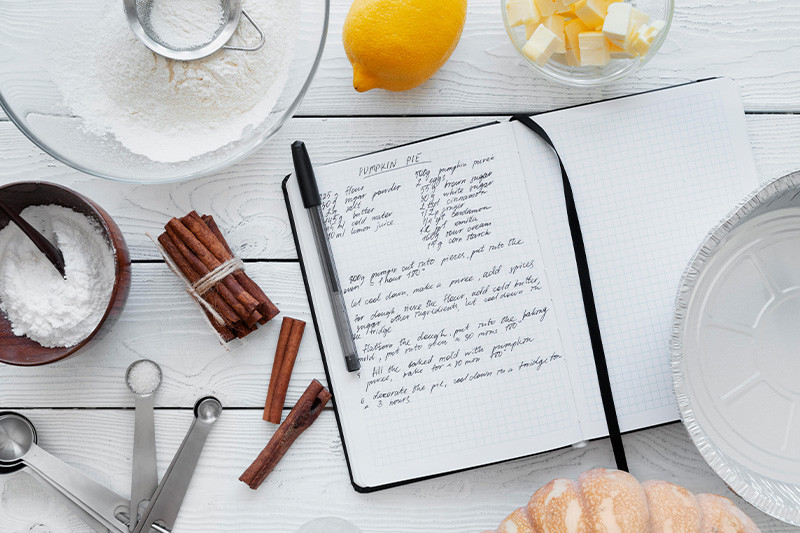 PUMPKIN PIE
flour
sugar powder
salt
butter
cold water
lemon juice
500g pumpkin puree
2 eggs
55 g brown sugar
50 g white sugar
2 tsp cinnamon
1/2 ginger
cardamom
vanilla
sour cream
15 g corn starch
800g pumpkin cut into pieces, put into the
oven 1 hour 180°
let cool down, make a puree, add spices
for dough sieve the flour, add cold butter,
sugar, other ingredients, let cool down in
the fridge
flatten the dough, put into the baking
mold, put into oven a 30 mins 180°
fill the baked mold with pumpkin
puree, bake for a 50 mins 180°
decorate the pie, cool down in a fridge for
a 3 hours